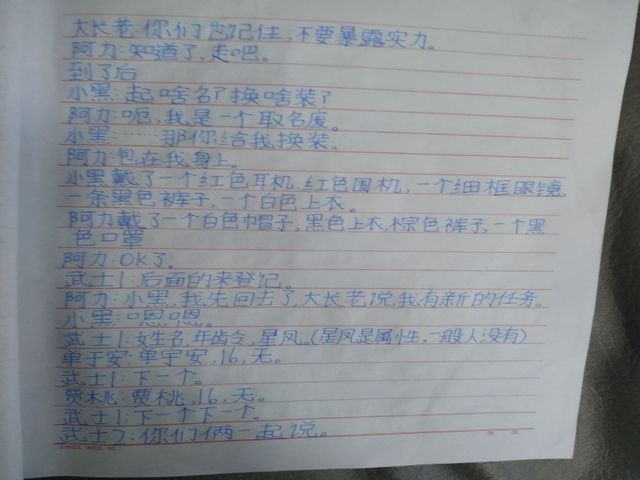 大长老:你们也记住,不要暴露实力。
阿力:知道了,走吧。
到了后
小黑:起啥名?换啥装?
阿力:呃,我是一个取名废。
小黑:……那你给我换装。
阿力:包在我身上。
小黑戴了一个红色耳机,红色围机,一个细框眼镜,
一条黑色裤子,一个白色上衣。
阿力戴了一个白色帽子,黑色上衣,棕色裤子,一个黑
色口罩
阿力:OK了。
武士1:后面的来登记。
阿力:小黑,我先回去了,大长老说,我有新的任务。
小黑:嗯嗯。
武士1:姓名,年龄,星凤。(星凤是属性,一般人没有)
单于安:单宇安,16,无。
武士1:下一个。
贾桃:贾桃,16,无。
武士1:下一个下一个。
武士2:你们俩一起说。